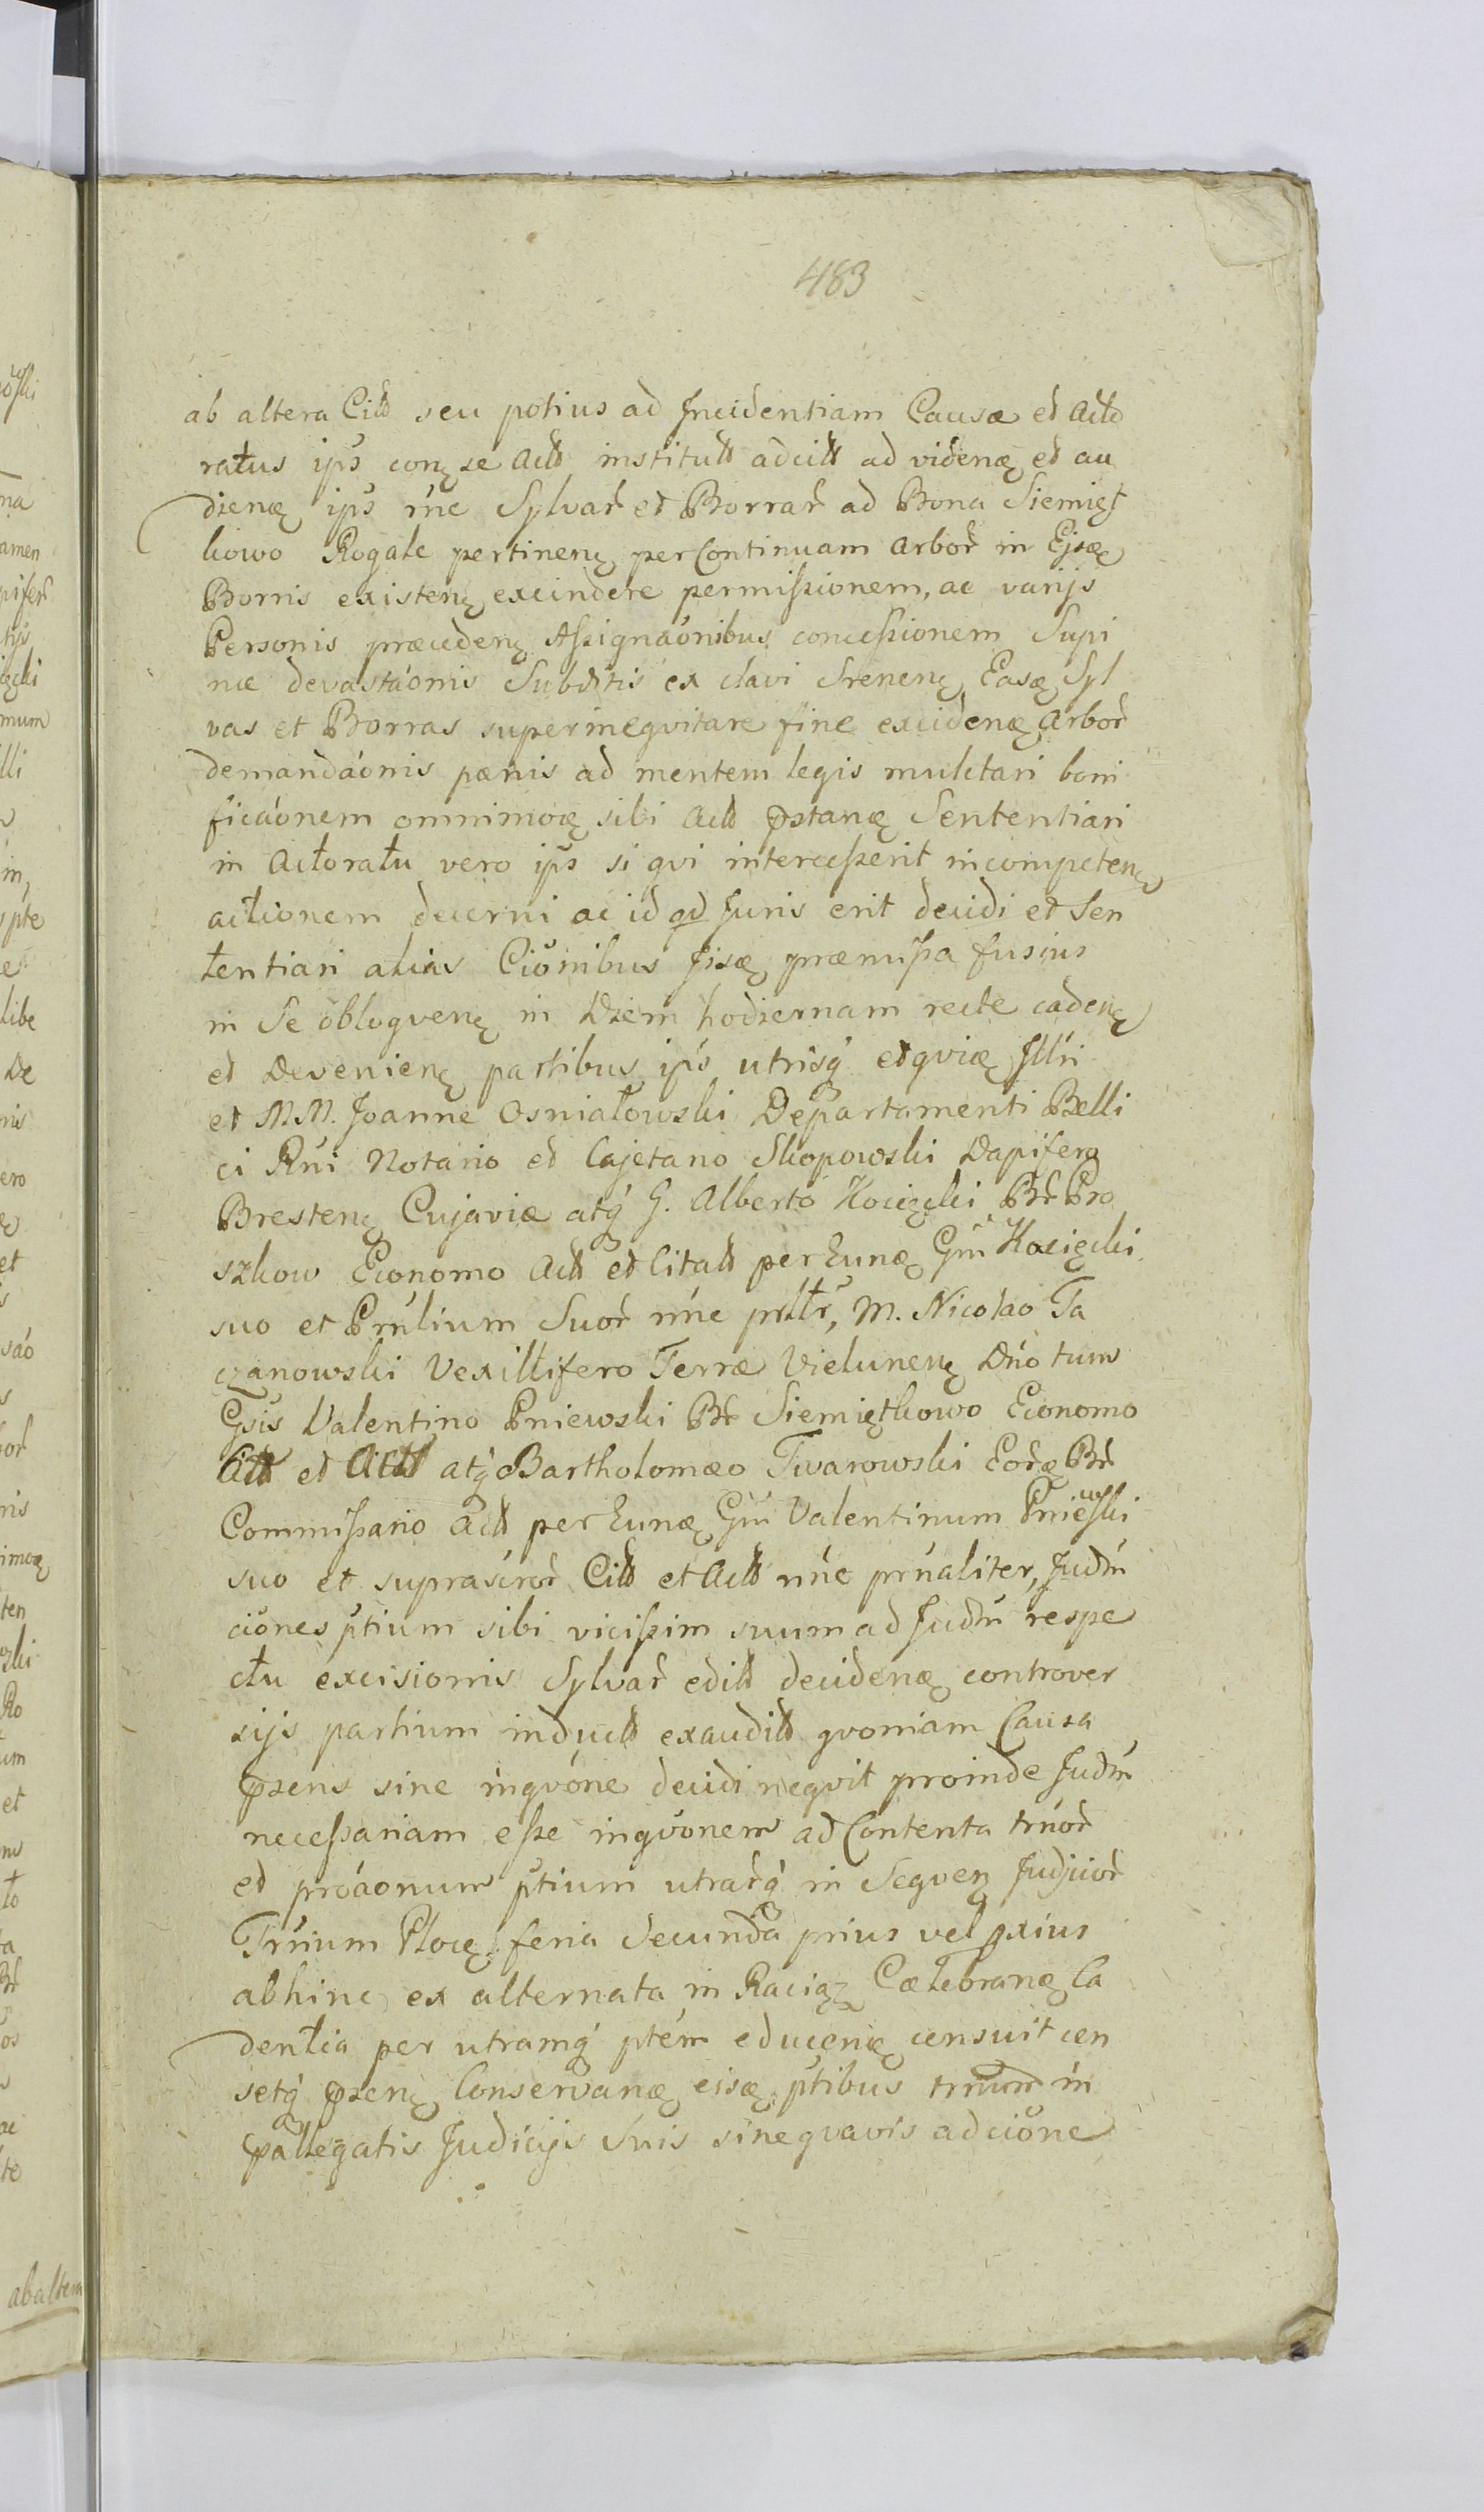 483
ab altera Citt seu potius ad Incidentiam Causæ et Acto
ratus ips conę se Actt institutt adcitt ad videnę et au
dienę ips nne Sylvar et Borrar ad Bona Siemięt
kowo Rogale pertinenę per Continuam Arbor in Ejsdę
Borris existenę excindere permißionem, ac varijs
Personis præcedenę Aßignaónibus conceßionem Supi
næ devastaónis Subditis ex clavi Srenenę Easę Syl
vas et Borras superineqvitare fine excidenę Arbor
demandaónis pænis ad mentem legis mulctari boni
ficaónem omnimodę sibi Actt pstanę Sententiari
in Actoratu vero ips si qvi interceßerit incompetenę
actionem decerni ac id qd Juris erit decidi et Sen
tentiari alias Ciónibus Jisdę præmißa fusius
in Se obloqvenę in Diem hodiernam recte cadenę
et Devenienę partibus ips utrisq́ et qvidę Illri
et M.M. Joanne Osniałowski Departamenti Belli
ci Rni Notario et Cajetano Skopowski Dapifero
Brestenę Cujaviæ atq́ G. Alberto Kocięcki Br Pro
szkow Economo Actt et Citatt per Eundę Gm Kocięcki
suo et Prnlium Suor nne prlłr, M. Nicolao Ta
czanowski Vexillifero Terræ Vielunenę Dno tum
Gsis Valentino Pniewski Br Siemiętkowo Economo
Citt et Actt atq́ Bartholomæo Twarowski Eordę Br
Commißario Actt per Eundę Gm Valentinum Pniewski
suo et suprascror Citt et Actt nne prnaliter, Judm
ciónes ptium sibi vicißim suum ad Judm respe
ctu excisionis Sylvar editt decidenę controver
sijs partium inductt exauditt qvoniam Causa
pzens sine inqvóne decidi neqvit proinde Judm
neceßariam eße inqvónem ad Contenta trnor
et proáonum ptium utrarq́ in Seqven Judicior
Trrium Plocę feria Secunda prius vel pxius
abhinc ex alternata in Raciąz Cælebranę Ca
dentia per utramq́ ptem educenę censuit cen
setq́ pzenę Conservanę eisdę ptibus trnum in
pallegatis Judicijs Suis sine qvavis adcióne
ab altera